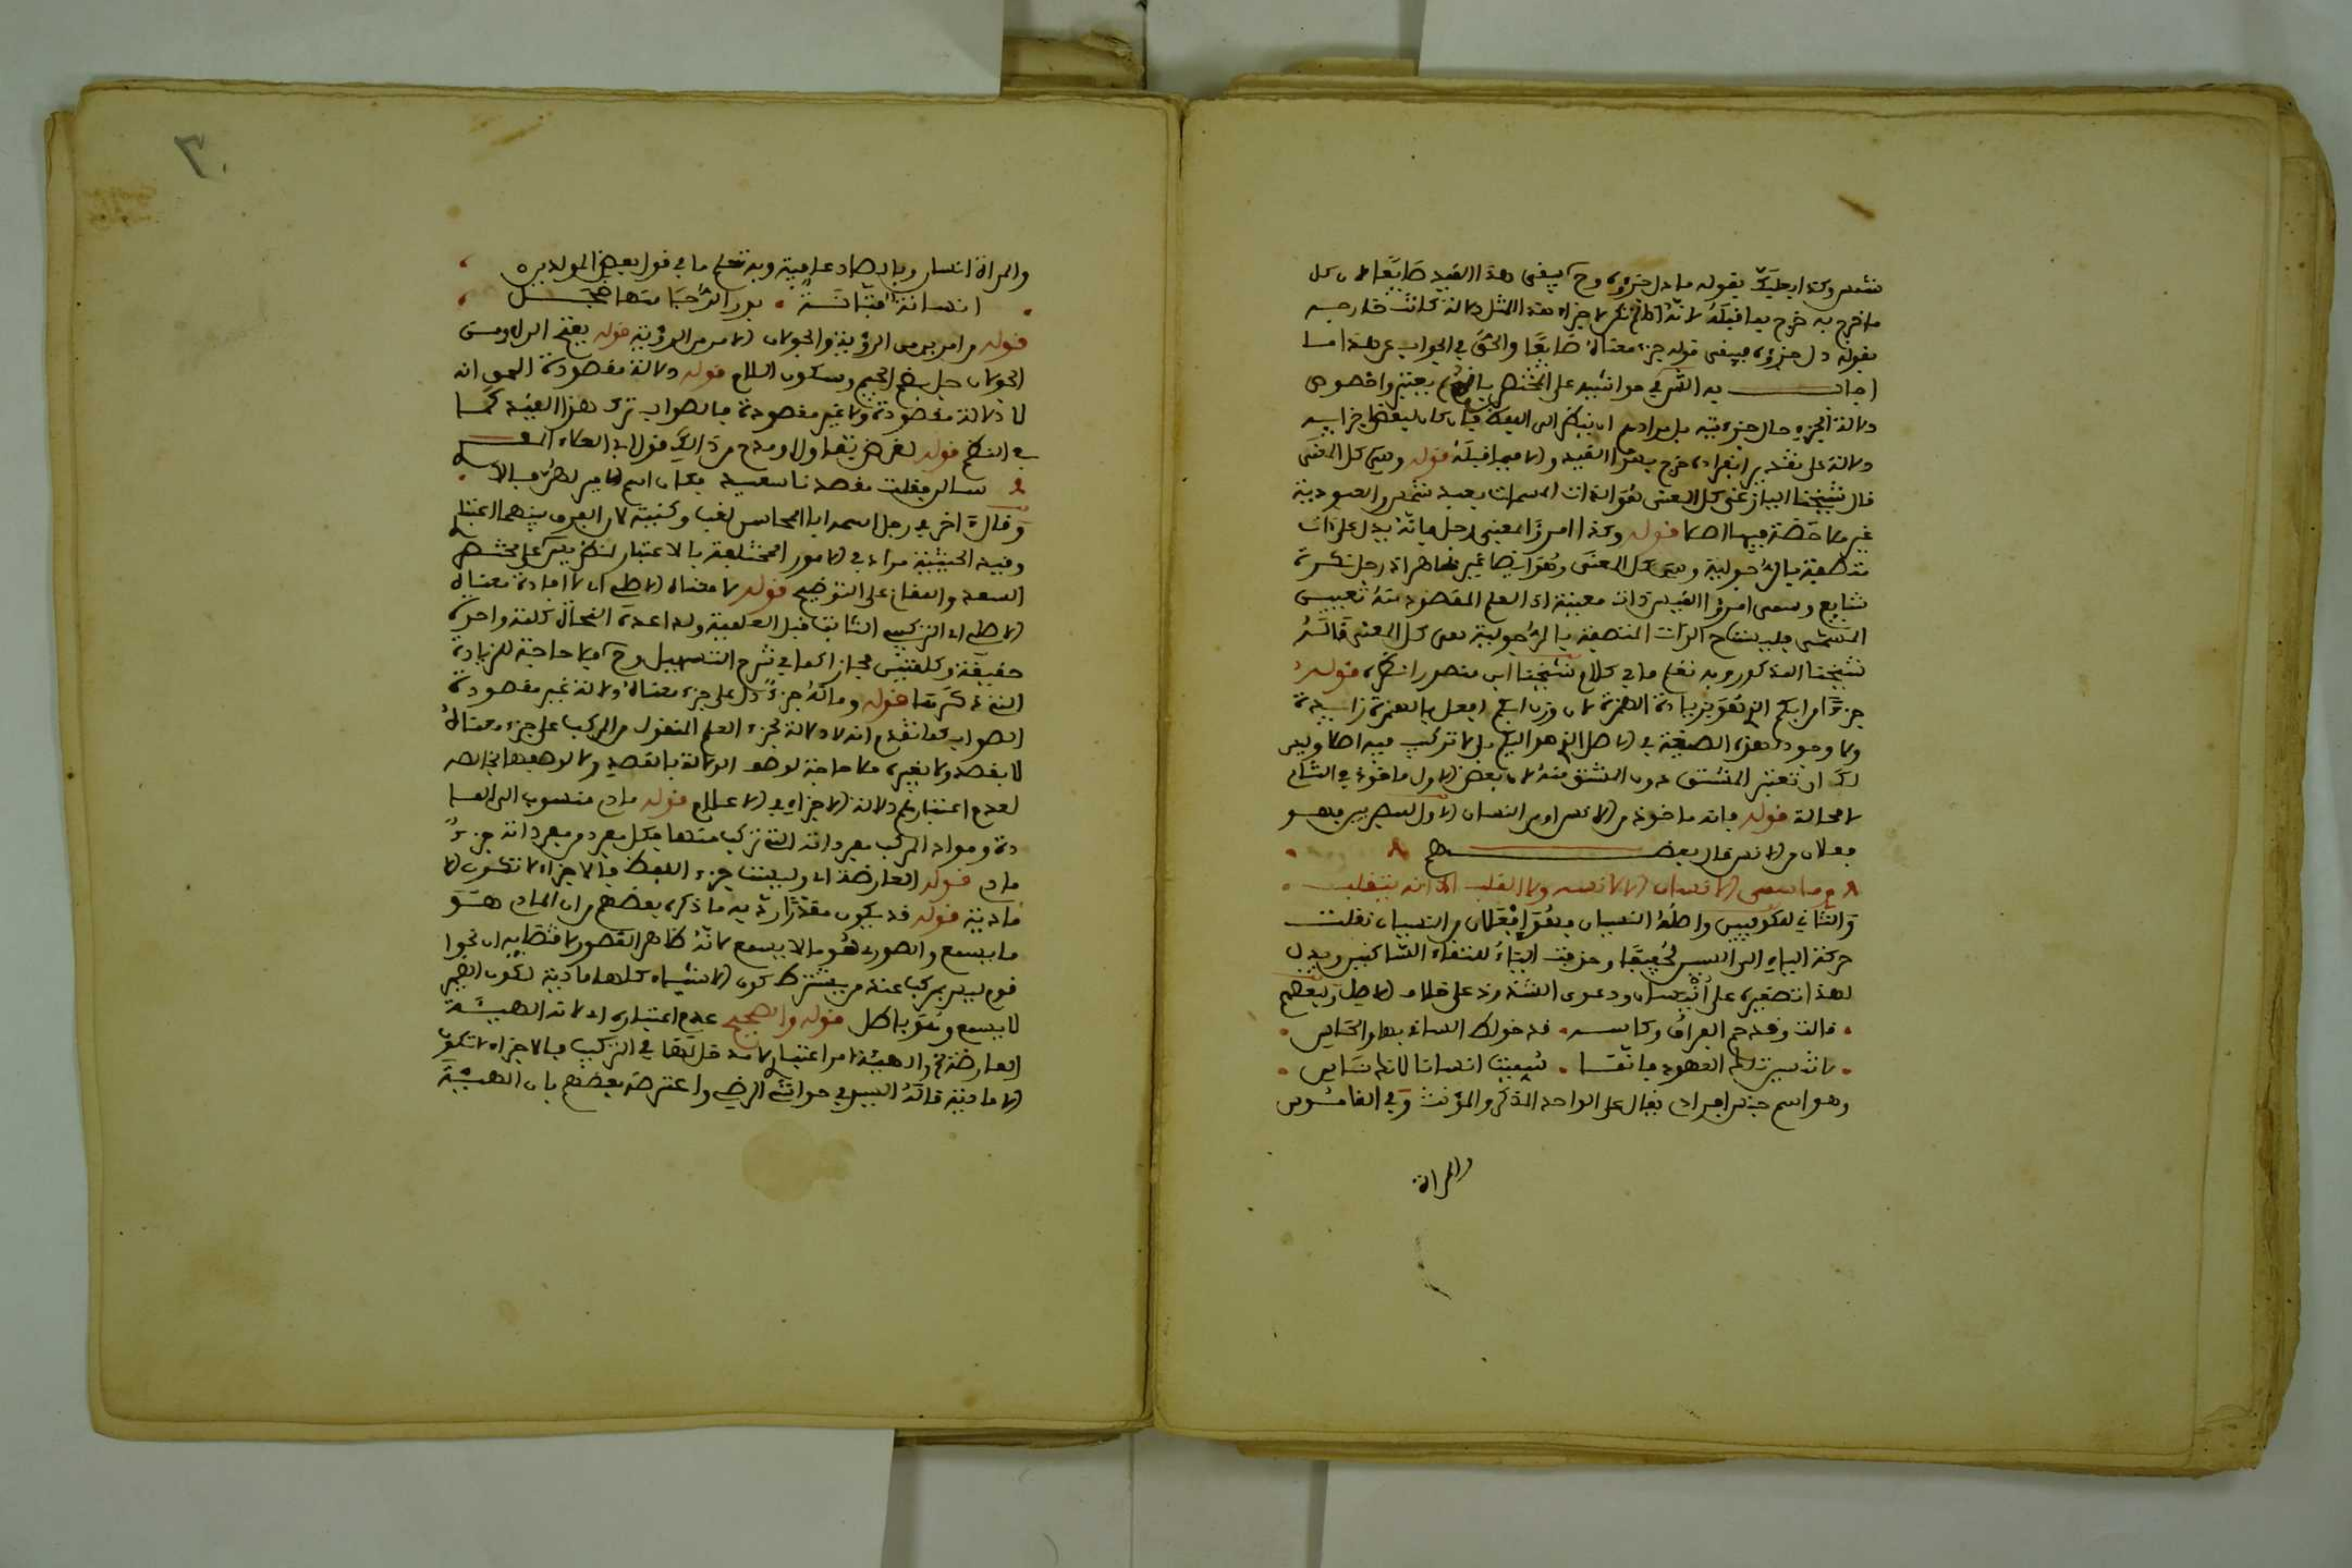 شمس وكذا بعلبك بقوله ما دل جزؤه وح يبقى هذا القيد ضايعا لان كل
ما خرج به خرج بما قبله لانه اذا لم تكن لاجزاء هذا المثل دلالة كانت خارجه
بقوله دل جزؤه فيبقى قوله جزء معناه ضايعا والحق في الجواب عن هذا ما
اجاب به القرافي في حواشيه على المختصر بانهم لم يعتبروا خصوص
دلالة الجزء حال جزءيته بل مرادهم ان ينظر الى اللفظ فان كان لبعض اجزايه
دلالة على تقدير انفراده خرج بهذا القيد والا فبما قبله قوله وهي كل المعنى
قال شيخنا البياز عنى كل المعنى هو الذات المسمات بعبد شمس والعبودية
غير ملاحظة فيها اصلا قوله وكذا امرؤ المعنى رجل فانه يدل على ذات
متصفة بالرجولية وهي كل المعنى وهو ايضا غير ظاهر اذ رجل نكرة
شايع وسمى امرؤ القيس ذات معينة اذ العلم المقصود منه تعيين
المسمى فليست الذات المتصفة بالرجولية هي كل المعنى قاله
شيخنا المذكور وبه تعلم ما في كلام شيخنا ابن منصور انظره قوله
جزءا من ابكم الخ هو بزيادة الهمزة لان وزن ابكم افعل بالهمزة زايدة
ولا وجود لهذه الصيغة في الاصل الذي هو البكم بل لا تركيب فيه اصلا وليس
لك ان تعتبر المشتق دون المشتق منه لان بعض الاول ماخوذ في الثاني
لا محالة قوله فانه ماخوذ من الانس او من النسيان الاول للبصريين فهو
فعلان من الانس قال بعضهم
وما سمي الانسان الا لانسه ولا القلب الا انه يتقلب
والثاني للكوفيين واصله انسيان فهو افعلان من النسيان نقلت
حركة الياء الى السين تخفيفا وحذفت الياء لالتقاء الساكنين ويدل
لهذا تصغيره على انيسيان ودعوى الشذوذ على خلاف الاصل ولبعضهم
قالت وقد حم الفراق وكاسه قد خولط الساقي بها والحاسي
لا تنسين تلك العهود فانما سميت انسانا لانك ناسي
وهو اسم جنس افرادي يقال على الواحد المذكر والمؤنث وفي القاموس
والمراة
٣٠
والمراة انسان وبالهاء عامية وبه تعلم ما في قول بعض المولدين
انسانة فتانة بدر الدجا منها خجل
قوله من امرين من الرؤية والجولان الامر من الرؤية قوله بفتح الراء ومن
الجولان جل بضم الجيم وسكون اللام قوله دلالة مقصودة الحق انه
لا دلالة مقصودة ولا غير مقصودة فالصواب ترك هذا القيد كما
في النظم قوله لغرض تفاول او مدح من ذالك قول ابي العلاء المعري
سالن فقلت مقصدنا سعيد فكان اسم الامير لهن فالا
وقال اخر في رجل اسمه ابا المحاسن لقبا وكنية لان الفرق بينهما اعتباري
وقيد الحيثية مراعى في الامور المختلفة بالاعتبار انظر يس على مختصر
السعد واللقاني على التوضيح قوله لا معناه الاصلي اي لا افادة معناه
الاصلي اي التركيب الثابت قبل العلمية ولذا عده النحاة كلمة واحدة
حقيقة وكلمتين مجازا كما في شرح التسهيل وح فلا حاجة للزيادة
التي ذكرتها قوله وما له جزء دل على جزء معناه دلالة غير مقصودة
الصواب كما تقدم انه لا دلالة لجزء العلم المنقول من المركب على جزء معناه
لا بقصد ولا بغيره فلا حاجة لوصف الدلالة بالقصد ولا لوصفها بخالصه
لعدم اعتبارهم دلالة الاجزاء في الاعلام قوله مادي منسوب الى الما
دة ومواد المركب مفرداته التي تركب منها فكل مفرد من مفرداته جزء
مادي قوله العارضة اي وليست جزء اللفظ فالاجزاء لا تكون الا
مادية قوله قد يكون مقدرا رد به ما ذكره بعضهم من ان المادي هو
ما يسمع والصوري هو ما لا يسمع لانه ظاهر القصور لاقتضايه ان نحو ا
قوم ليس بمركب عند من يشترط كون الاشياء كلها مادية لكون الضمير
لا يسمع وهو باطل قوله والصحيح عدم اعتباره اي لانه الهيئة
العارضة والهيئة امر اعتباري لا مدخل لها في التركيب فالاجزاء لا تكون
الا مادية قاله السيد في حواشي الرضي واعترضه بعضهم بان الهيئة